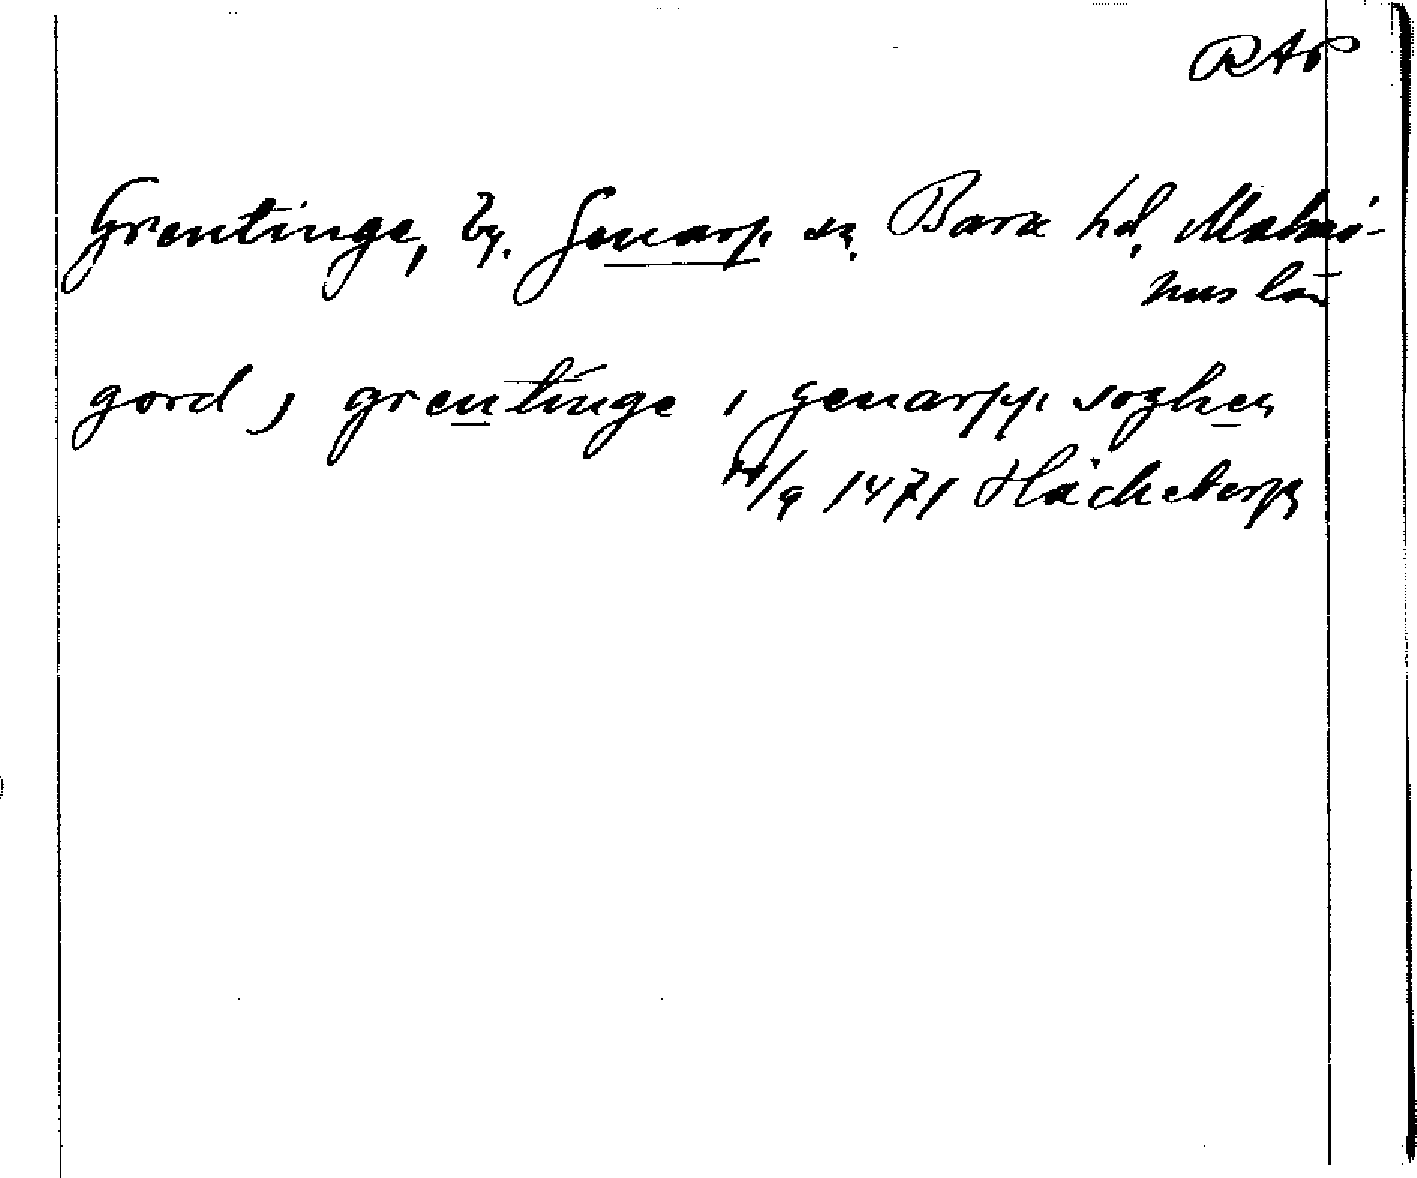 RAP
Grentinge, by. Genarp sn. Bara hd. Malmö-
hus län
gord j grentinge i genarpp soghen
/9 1471 Häckeberga